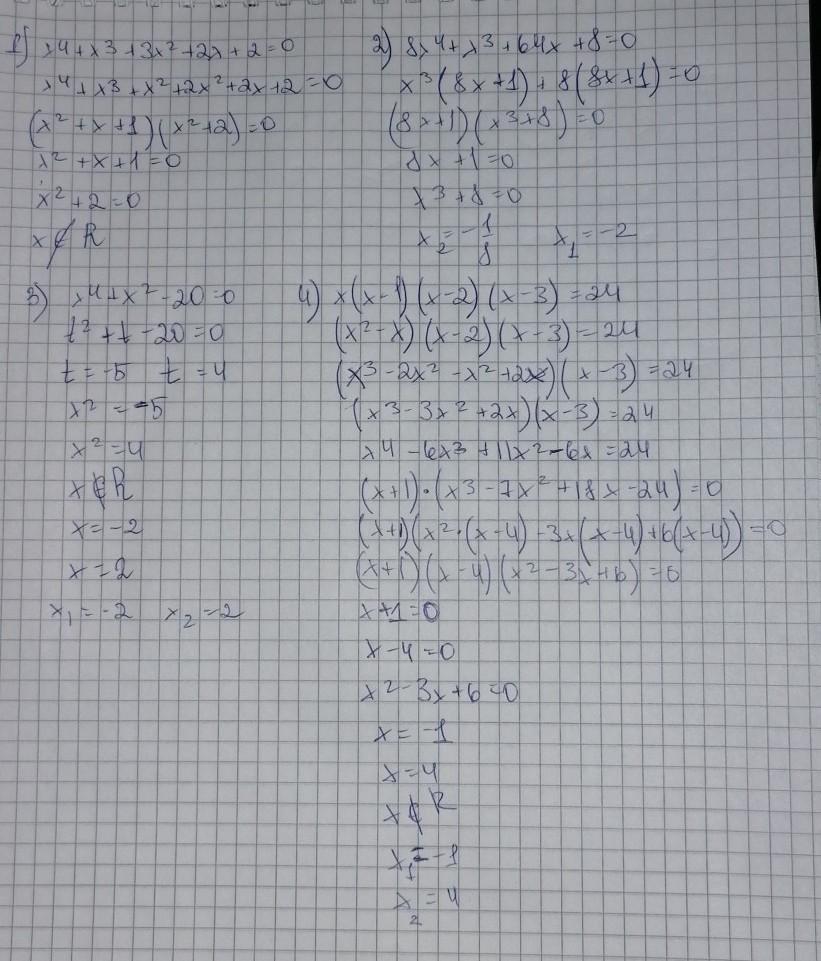 1) x⁴+x³+3x²+2x+2=0
x⁴+x³+x²+2x²+2x+2=0
(x²+x+1)(x²+2)=0
x²+x+1=0
x²+2=0
x∉R
2) 8x⁴+x³+64x+8=0
x³(8x+1)+8(8x+1)=0
(8x+1)(x³+8)=0
8x+1=0
x³+8=0
x₂=-1/8 x₁=-2
3) x⁴+x²-20=0
t²+t-20=0
t=-5 t=4
x²=-5
x²=4
x∉R
x=-2
x=2
x₁=-2 x₂=2
4) x(x-1)(x-2)(x-3)=24
(x²-x)(x-2)(x-3)=24
(x³-2x²-x²+2x)(x-3)=24
(x³-3x²+2x)(x-3)=24
x⁴-6x³+11x²-6x=24
(x+1)·(x³-7x²+18x-24)=0
(x+1)(x²·(x-4)-3x(x-4)+6(x-4))=0
(x+1)(x-4)(x²-3x+6)=0
x+1=0
x-4=0
x²-3x+6=0
x=-1
x=4
x∉R
x₁=-1
x₂=4